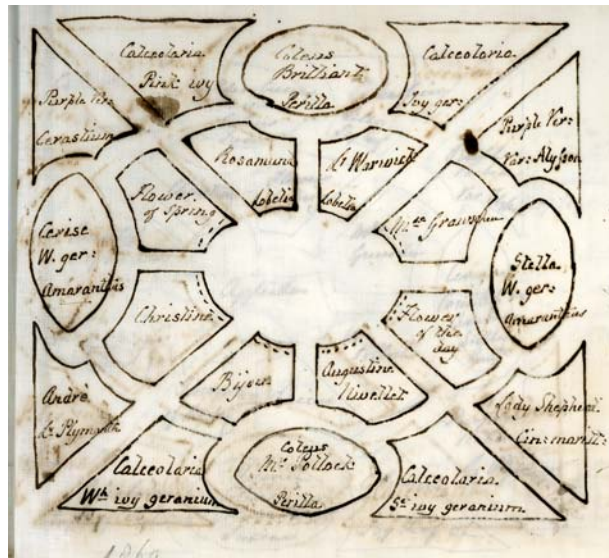 Calceolaria
Pink ivy
Coleus
Brilliant
Perilla
Calceolaria
Ivy ger:
Purple Ver:
Cerastium
Purple Ver:
Var: Alysson
Rosamund
Lobelia
Ly Warwick
Lobelia
Flower
of Spring
Mrs
Cerise
W. ger:
Amaranthis
Stella
W. ger:
Amaranthis
Christine
Flower
of the
day
Bijou
Augustine
Nivellet
André
Ly Plymouth
Lady
Calceolaria
Wh ivy geranium
Coleus
Mrs Pollock
Perilla
Calceolaria
ivy geranium